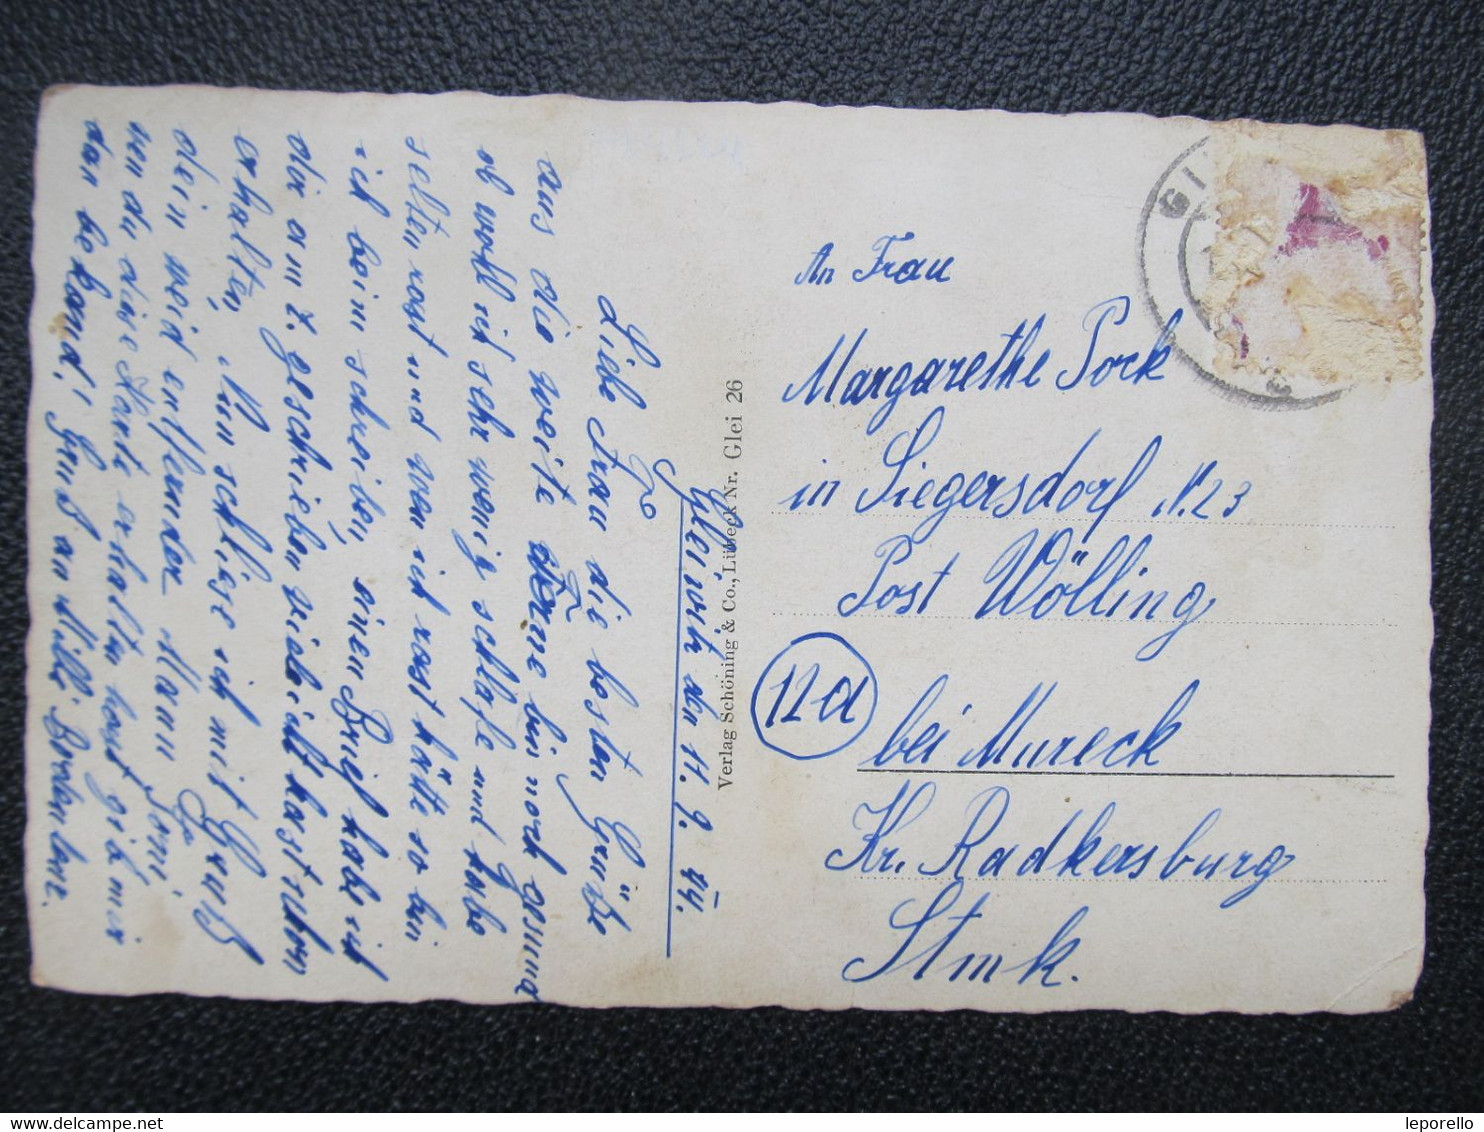 Gleiwitz den 11. 9. 44.
Liebe Frau die besten Grüße
aus die weite Ferne bin noch gesund
ob wohl ich sehr wenig schlafe und habe
selten rost und wen ich rost hätte so bin
ich beim schreiben, einen Brief habe ich
dir am 7. geschrieben vieleicht hast schon
erhalten, Nun schliese ich mit Gruß
dein weid entfernder Mann Toni,
wen du diese Karte erhalten hast gib mir
dan bekand! Gruß an Milli
Verlag Schöning & Co., Lübeck Nr. Glei 26
An Frau
Margarethe Pock
in Siegersdorf N.23
Post Wölling
12a
bei Mureck
Kr. Radkersburg
Stmk.
GL
leporello